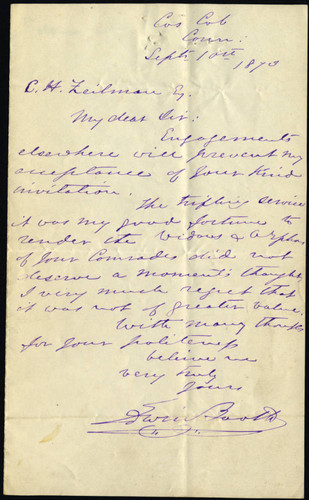 Cos Cob
Conn:
Sept 10th 1873
C. H. Zeilman Eq.
My dear Sir:
Engagements
elsewhere will prevent my
acceptance of your kind
invitation.
The trifling service
it was my good fortune to
render the widows & Orphans
of your Comrades did not
deserve a moment's thought
I very much regret that
it was not of greater value.
With many thanks
for your politeness
believe me
very truly
Yours
Edwin Booth